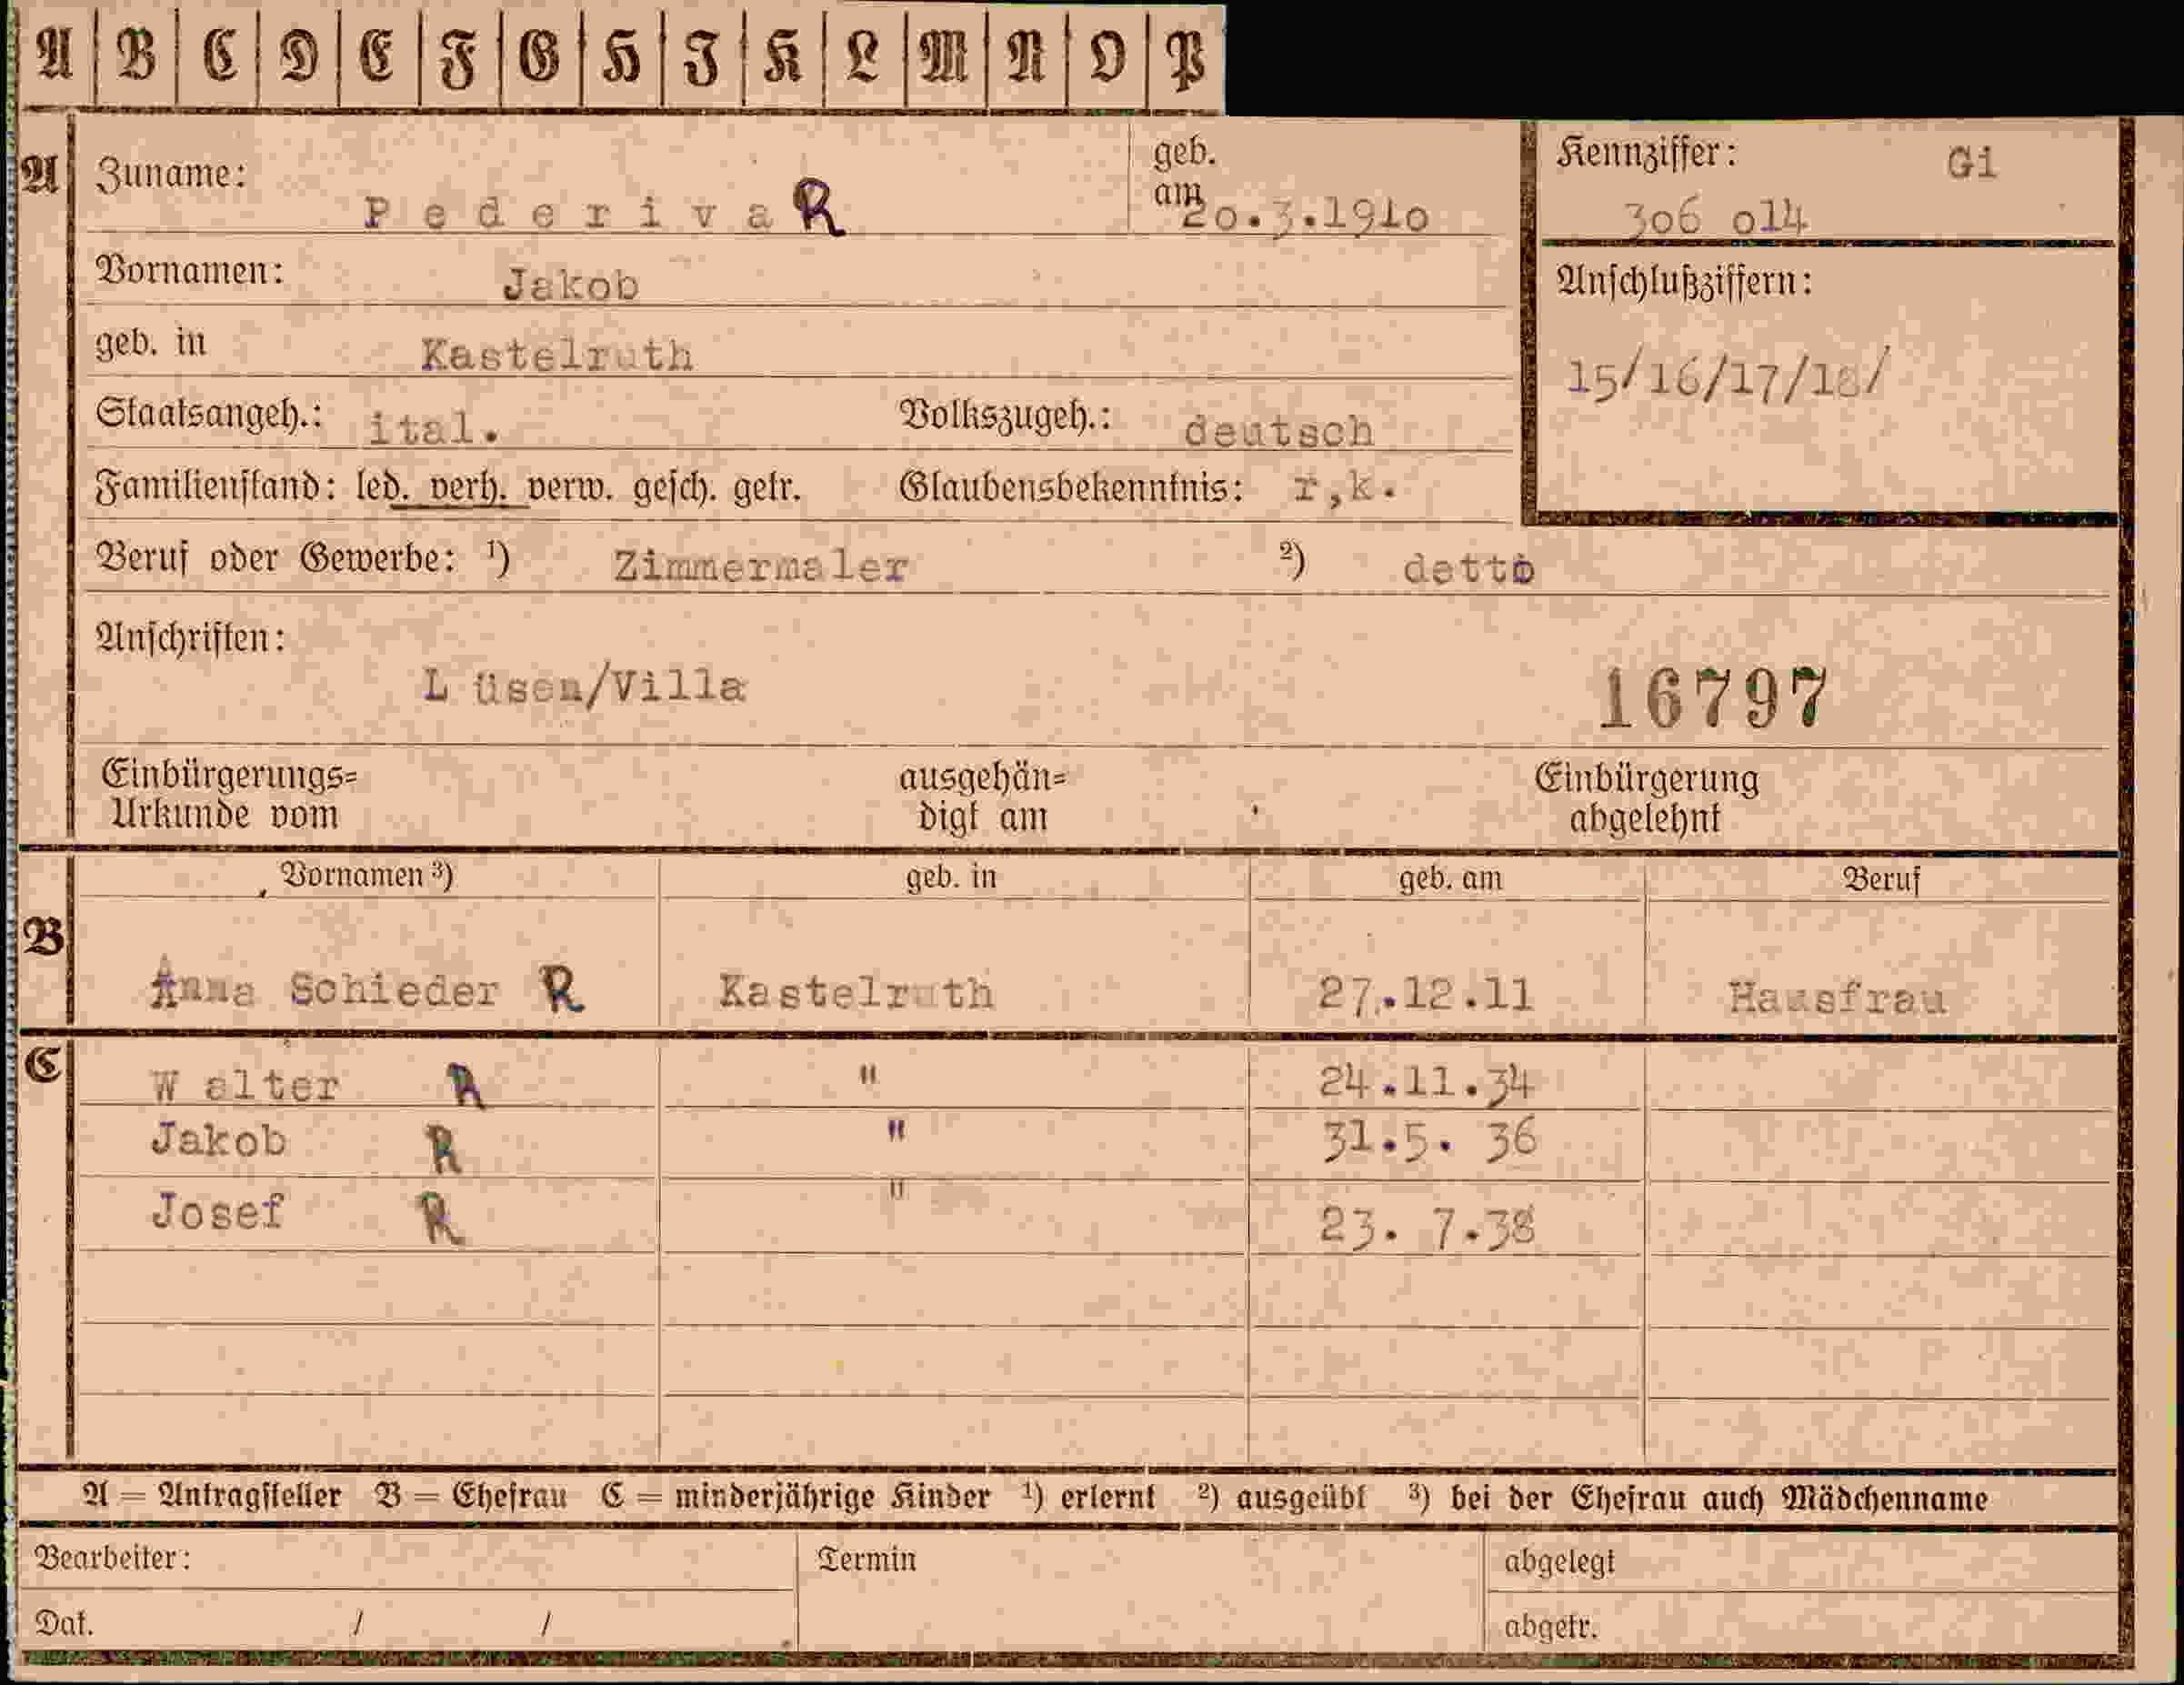 A B C D E F G H I K L M N O P
A Zuname: Pederiva R geb. am 20.3.1910
Kennziffer: Gi
306 o14
Vornamen: Jakob
Anschlußziffern:
geb. in Kastelruth
15/16/17/18/
Staatsangeh.: ital. Volkszugeh.: deutsch
Familienstand: led. verh. verw. gesch. getr. Glaubensbekenntnis: r,k.
Beruf oder Gewerbe: ¹) Zimmermaler ²) detto
Anschriften:
L üsen/Villa 16797
Einbürgerungs= ausgehän= Einbürgerung
Urkunde vom digt am abgelehnt
Vornamen ³) geb. in geb. am Beruf
B
Anna Schieder R Kastelruth 27.12.11 Hausfrau
C
W alter R " 24.11.34
Jakob R " 31.5. 36
Josef R " 23. 7.38
A = Antragsteller B = Ehefrau C = minderjährige Kinder ¹) erlernt ²) ausgeübt ³) bei der Ehefrau auch Mädchenname
Bearbeiter: Termin abgelegt
Dat. / / abgetr.